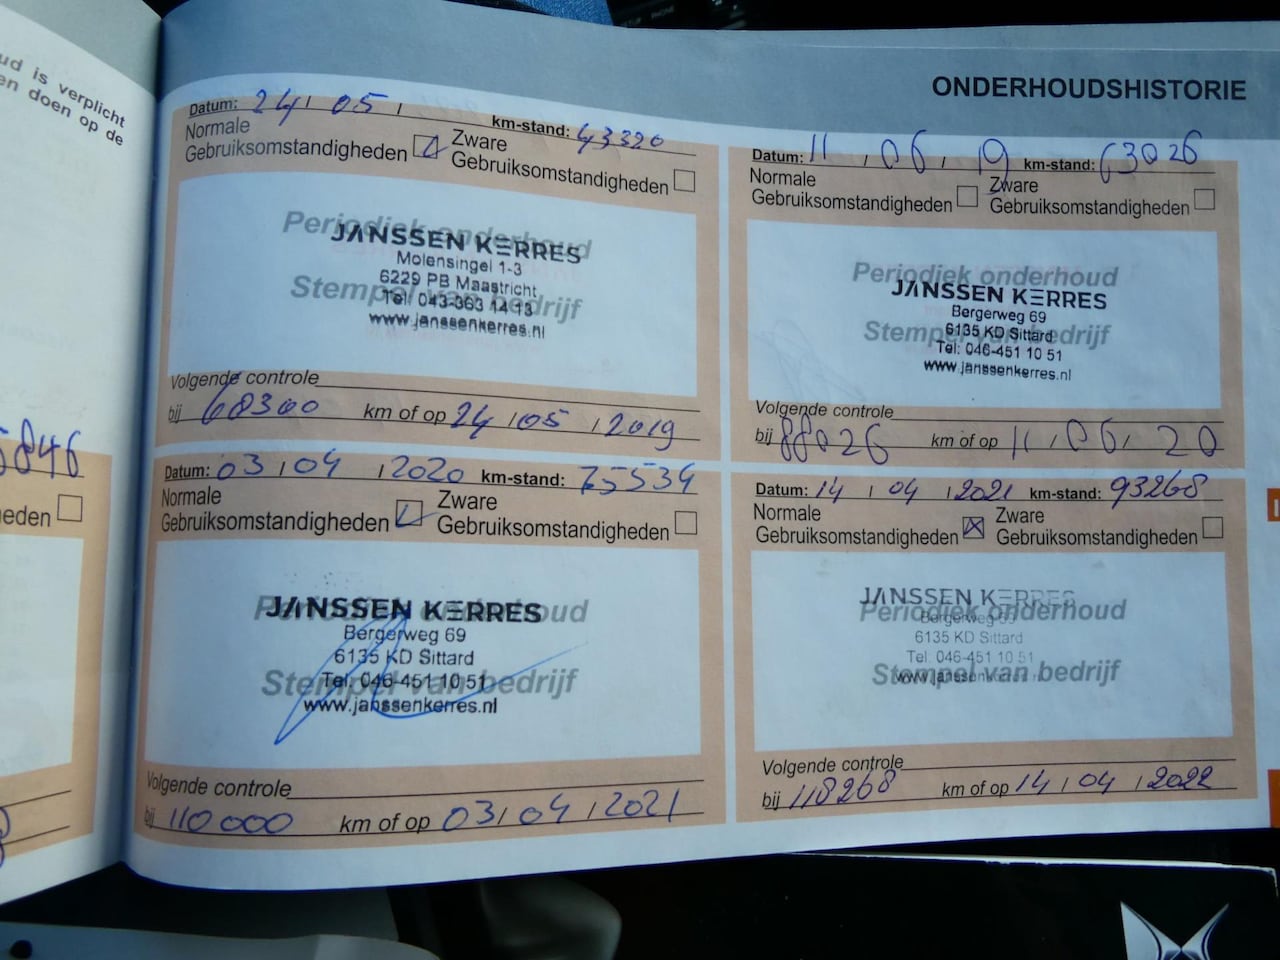 ud is verplicht
en doen op de
5846
eden
ONDERHOUDSHISTORIE
Datum: 24 / 05 / km-stand: 43320
Normale Gebruiksomstandigheden
Zware Gebruiksomstandigheden
Periodiek onderhoud
JANSSEN KERRES
Molensingel 1-3
6229 PB Maastricht
Stempel van bedrijf
Tel: 043-363 14 13
www.janssenkerres.nl
Volgende controle
bij 68300 km of op 24 / 05 / 2019
Datum: 11 / 06 / 19 km-stand: 63026
Normale Gebruiksomstandigheden
Zware Gebruiksomstandigheden
Periodiek onderhoud
JANSSEN KERRES
Bergerweg 69
6135 KD Sittard
Stempel van bedrijf
Tel: 046-451 10 51
www.janssenkerres.nl
Volgende controle
bij 88026 km of op 11 / 06 / 20
Datum: 03 / 04 / 2020 km-stand: 75534
Normale Gebruiksomstandigheden
Zware Gebruiksomstandigheden
Periodiek onderhoud
JANSSEN KERRES
Bergerweg 69
6135 KD Sittard
Stempel van bedrijf
Tel: 046-451 10 51
www.janssenkerres.nl
Volgende controle
bij 110000 km of op 03 / 04 / 2021
Datum: 14 / 04 / 2021 km-stand: 93268
Normale Gebruiksomstandigheden
Zware Gebruiksomstandigheden
JANSSEN KERRES
Periodiek onderhoud
Bergerweg 69
6135 KD Sittard
Tel: 046-451 10 51
Stempel van bedrijf
www.janssenkerres.nl
Volgende controle
bij 118268 km of op 14 / 04 / 2022